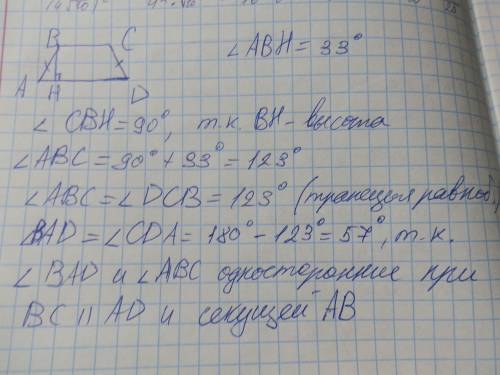 B C
∠ABH = 33°
A H D
∠CBH = 90°, т.к. BH – высота
∠ABC = 90° + 33° = 123°
∠ABC = ∠DCB = 123° (трапеция равноб.)
∠BAD = ∠CDA = 180° – 123° = 57°, т.к.
∠BAD и ∠ABC односторонние при
BC || AD и секущей AB